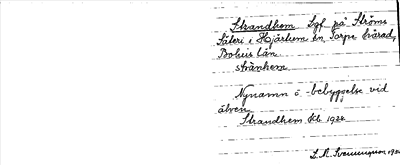 Strandhem Lgf på Ströms
Säteri i Hjärtum sn Torpe härad,
Bohus län.
strànhem
Nynamn å bebyggelse vid
älven.
Strandhem Kb 1922
S. A. Svenungsson 192